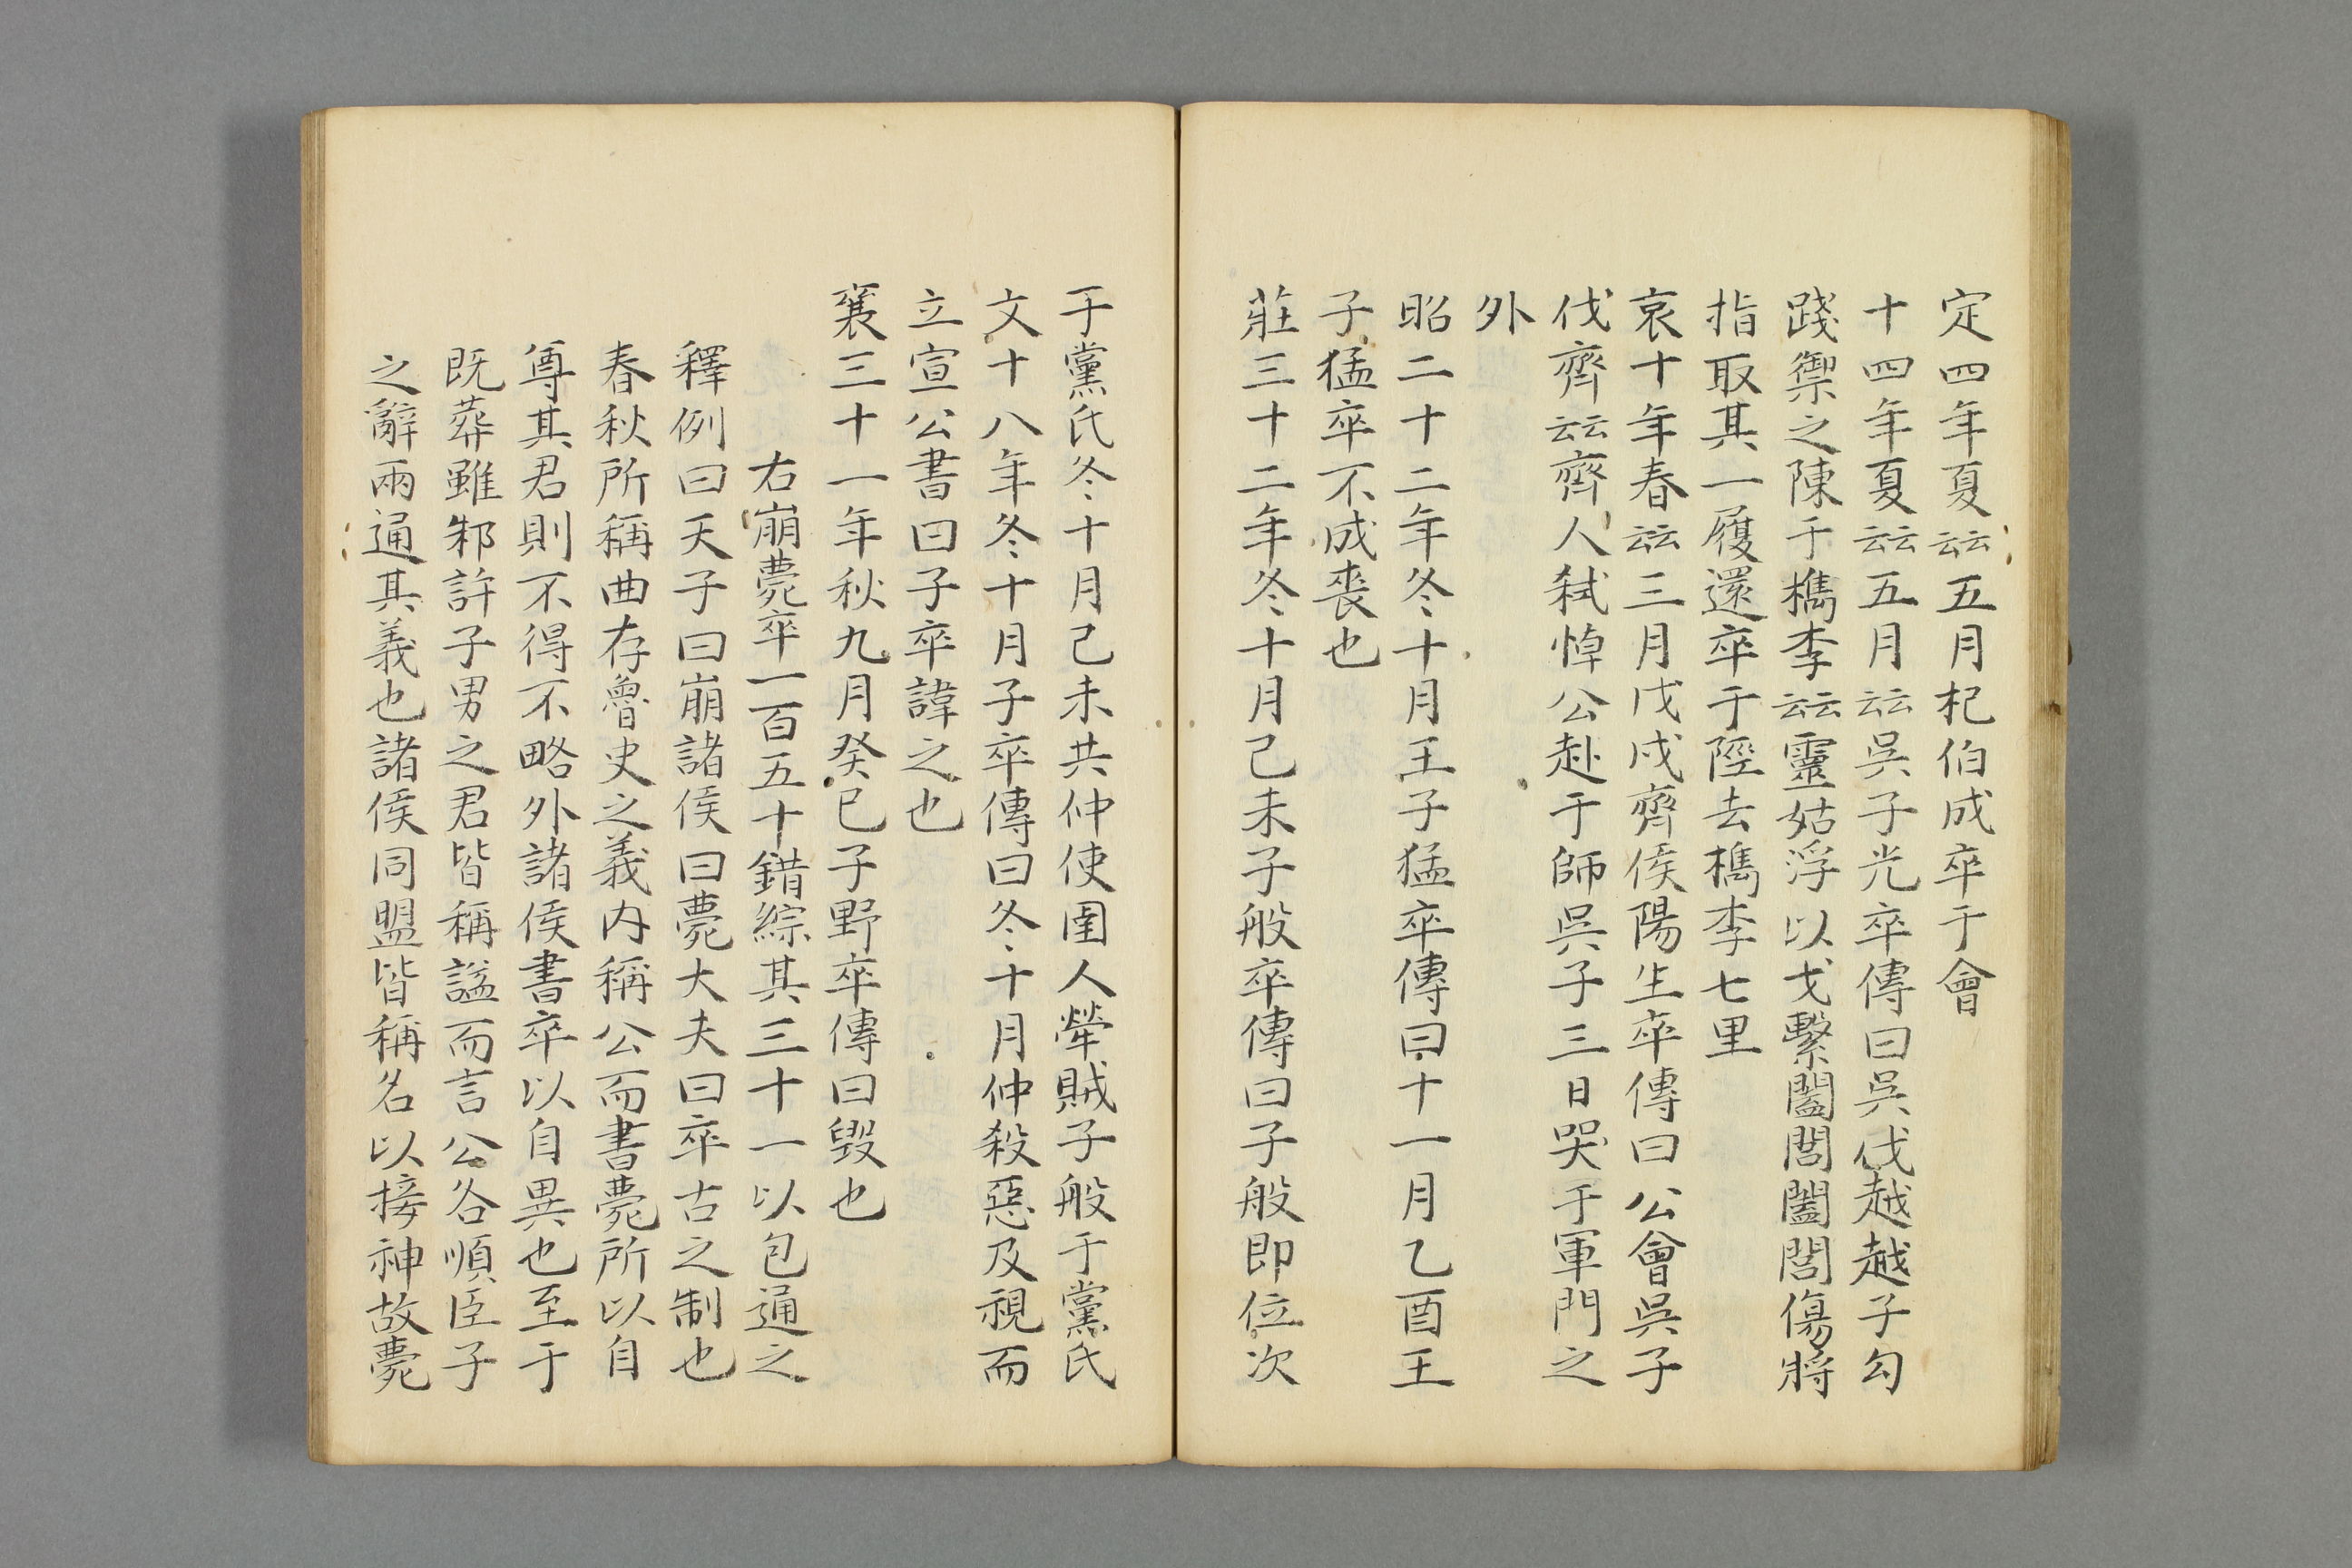 定四年夏云云五月杞伯成卒于會
十四年夏云云五月云云吳子光卒傳曰吳伐越越子勾
踐禦之陳于檇李云云靈姑浮以戈繫闔閭闔閭傷將
指取其一履還卒于陘去檇李七里
哀十年春云云三月戊戌齊侯陽生卒傳曰公會吳子
伐齊云云齊人弒悼公赴于師吳子三日哭于軍門之
外
昭二十二年冬十月王子猛卒傳曰十一月乙酉王
子猛卒不成喪也
莊三十二年冬十月己未子般卒傳曰子般即位次
于黨氏冬十月己未共仲使圉人犖賊子般于黨氏
文十八年冬十月子卒傳曰冬十月仲殺惡及視而
立宣公書曰子卒諱之也
襄三十一年秋九月癸巳子野卒傳曰毀也
右崩薨卒一百五十錯綜其三十一以包通之
釋例曰天子曰崩諸侯曰薨大夫曰卒古之制也
春秋所稱曲存魯史之義內稱公而書薨所以自
尊其君則不得不略外諸侯書卒以自異也至于
既葬雖邾許子男之君皆稱謚而言公各順臣子
之辭兩通其義也諸侯同盟皆稱名以接神故薨